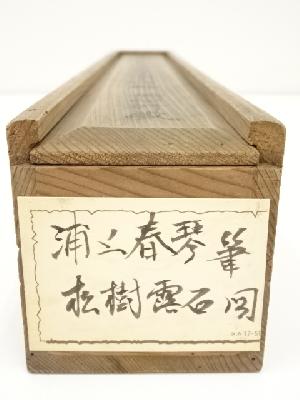 浦上春琴筆
松樹霊石図